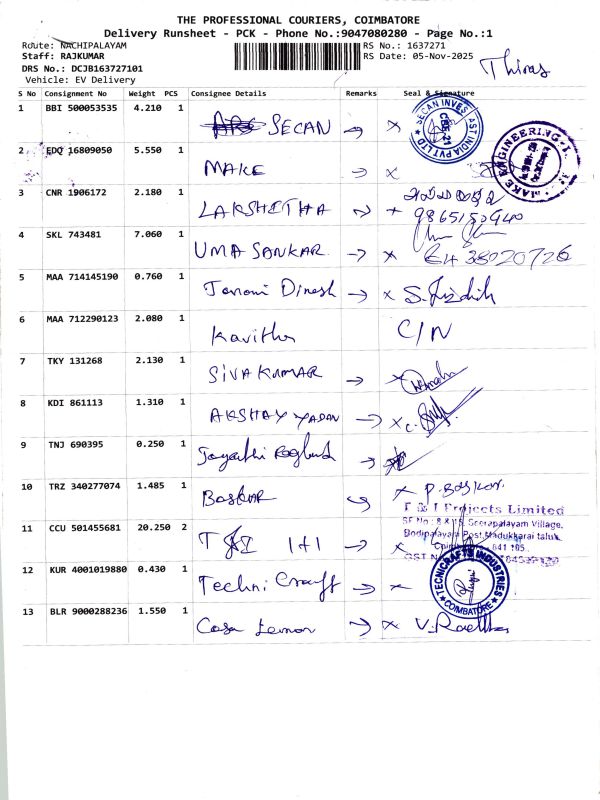 THE PROFESSIONAL COURIERS, COIMBATORE
Delivery Runsheet - PCK - Phone No.:9047080280 - Page No.:1
Route: NACHIPALAYAM RS No.: 1637271
Staff: RAJKUMAR RS Date: 05-Nov-2025
DRS No.: DCJB163727101
Vehicle: EV Delivery
S No Consignment No Weight PCS Consignee Details Remarks Seal & Signature
1 BBI 500053535 4.210 1 SECAN
2 EDQ 16809050 5.550 1 MAKE
3 CNR 1906172 2.180 1 LAKSHITHA
4 SKL 743481 7.060 1 UMA SANKAR
5 MAA 714145190 0.760 1 Janani Dinesh
6 MAA 712290123 2.080 1 Kavitha C/N
7 TKY 131268 2.130 1 SIVA KUMAR
8 KDI 861113 1.310 1 AKSHAY YADAV
9 TNJ 690395 0.250 1
10 TRZ 340277074 1.485 1 Baskar P. Baskar
T & I Projects Limited
11 CCU 501455681 20.250 2 T & I 1+1
Village,
Bodipalayam Post, Madukkarai taluk,
641 105
12 KUR 4001019880 0.430 1 Techni Craft
TECNICRAFTS INDUSTRIES
COIMBATORE
13 BLR 9000288236 1.550 1 V. Radha